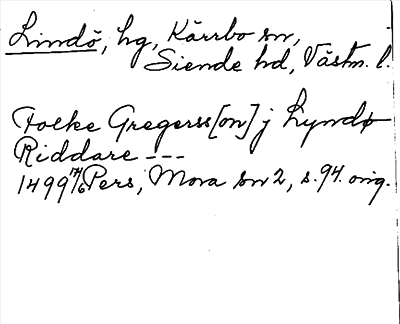 Lindö, hg, Kärrbo sn,
Siende hd, Västm. l.
Folke Gregerss[on] j Lyndø
Riddare ---
1499 14/6 Pers, Mora sn 2, s. 94. orig.